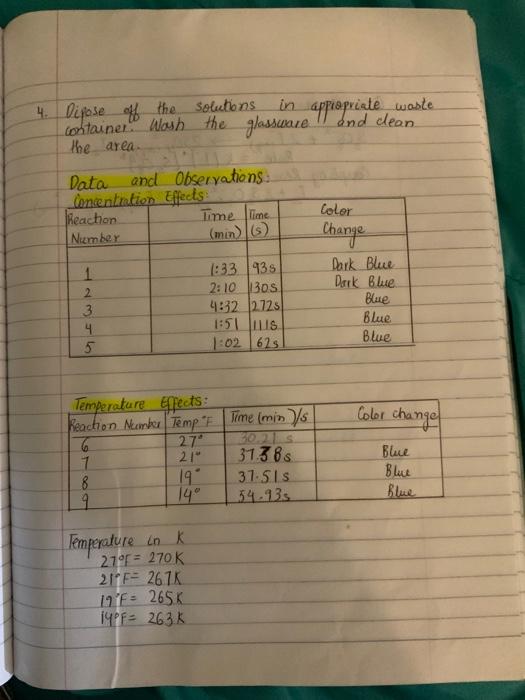 4. Dipose off the solutions in appropriate waste
container. Wash the glassware and clean
the area.
Data and Observations:
Concentration Effects:
Reaction Number Time (min) Time (s) Color Change
1 1:33 93s Dark Blue
2 2:10 130s Dark Blue
3 4:32 272s Blue
4 1:51 111s Blue
5 1:02 62s Blue
Temperature Effects:
Reaction Number Temp °F Time (min)/s Color change
6 27° 30.21 s
7 21° 37.38s Blue
8 19° 37.51s Blue
9 14° 54.93s Blue
Temperature in K
27°F = 270K
21°F = 267K
19°F = 265K
14°F = 263K